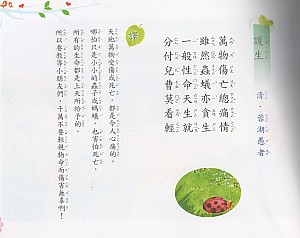 護生
清．蓉湖愚者
萬物傷亡總痛情
雖然蟲蟻亦貪生
一般性命天生就
分付兒曹莫看輕
譯
天地萬物受傷或死亡，都是令人心痛的。
哪怕只是小小的蟲子或螞蟻，也害怕死亡。
所有的生命都是上天所給予的，
所以要教導小朋友們，千萬不要輕視物命而傷害無辜啊！